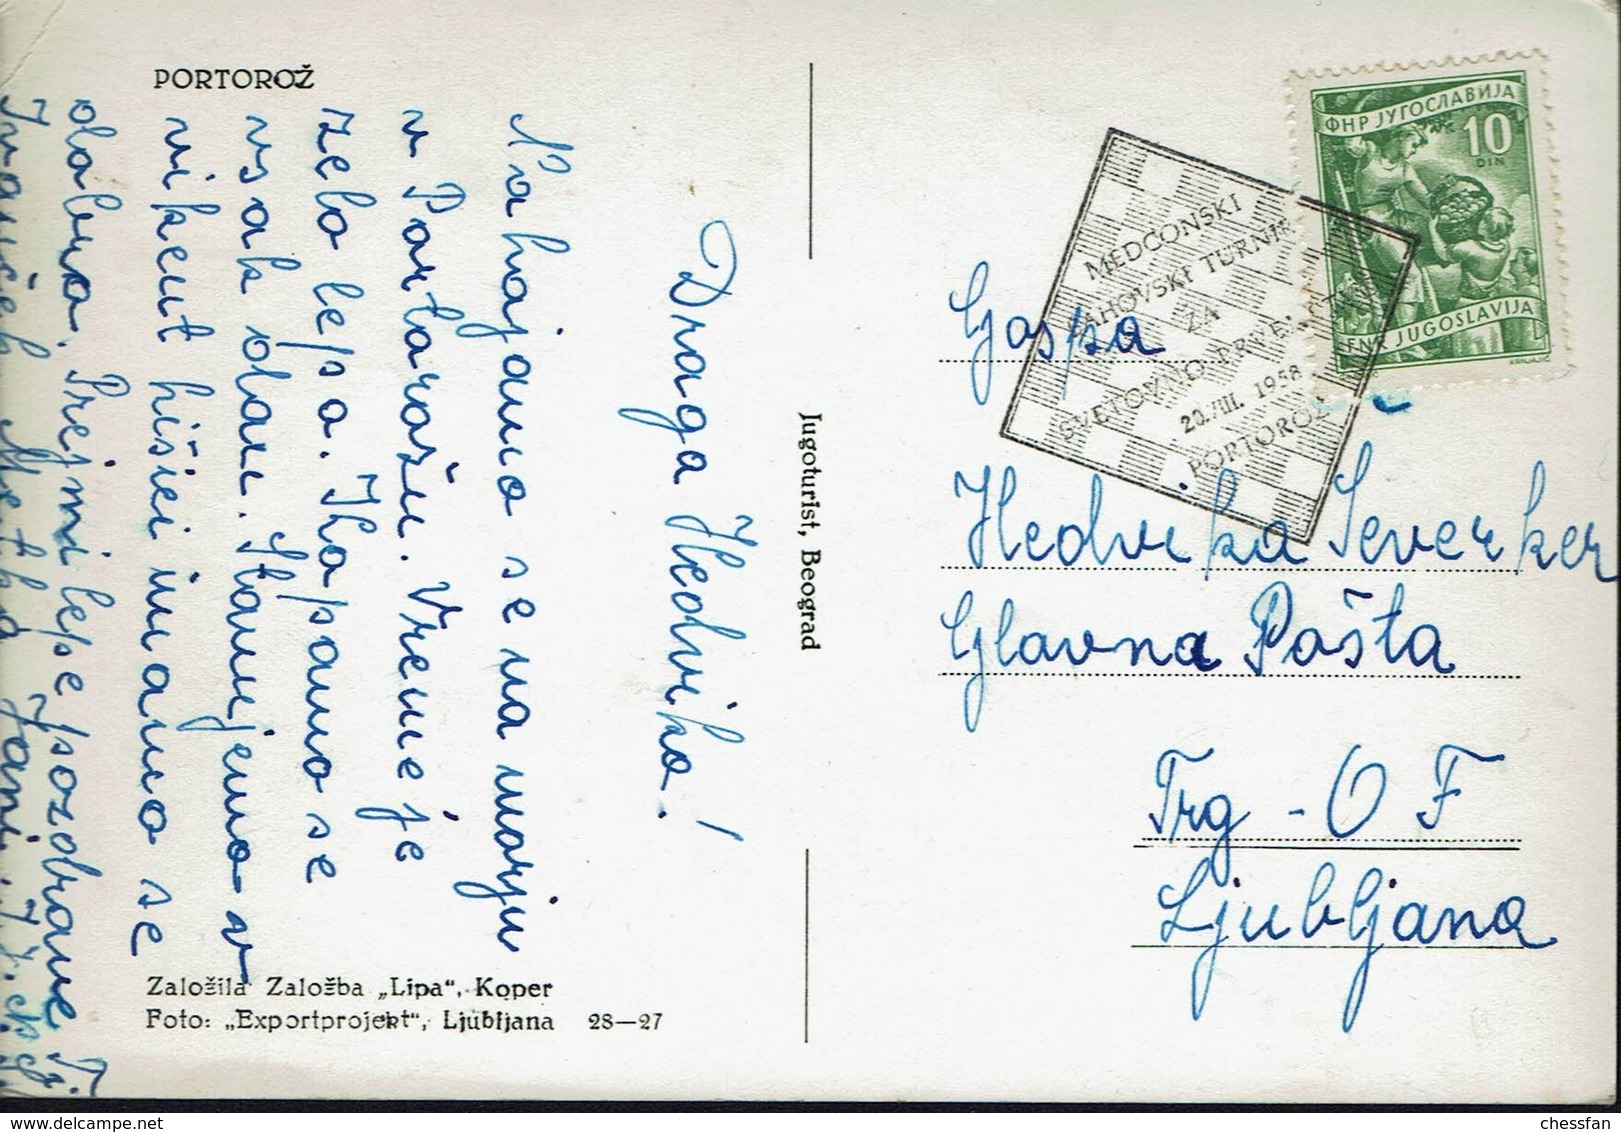 PORTOROŽ
Draga Hedvika!
Nahajamo se na morju
v Portorožu. Vreme je
zelo lepo. Kopamo se
vsak dan. Stanujemo v
vikent hišici imamo se
dobro. Prejmi lepe pozdrave
Založila Založba „Lipa“, Koper
Foto: „Exportprojekt“, Ljubljana 28—27
Jugoturist, Beograd
ФНР ЈУГОСЛАВИЈА
10
DIN
FNR JUGOSLAVIJA
MEDCONSKI
ŠAHOVSKI TURNIR
ZA
SVETOVNO PRVENSTVO
20.VIII. 1958
PORTOROŽ
Gospa
Hedvika Severker
Glavna Pošta
Trg - OF
Ljubljana
chessfan